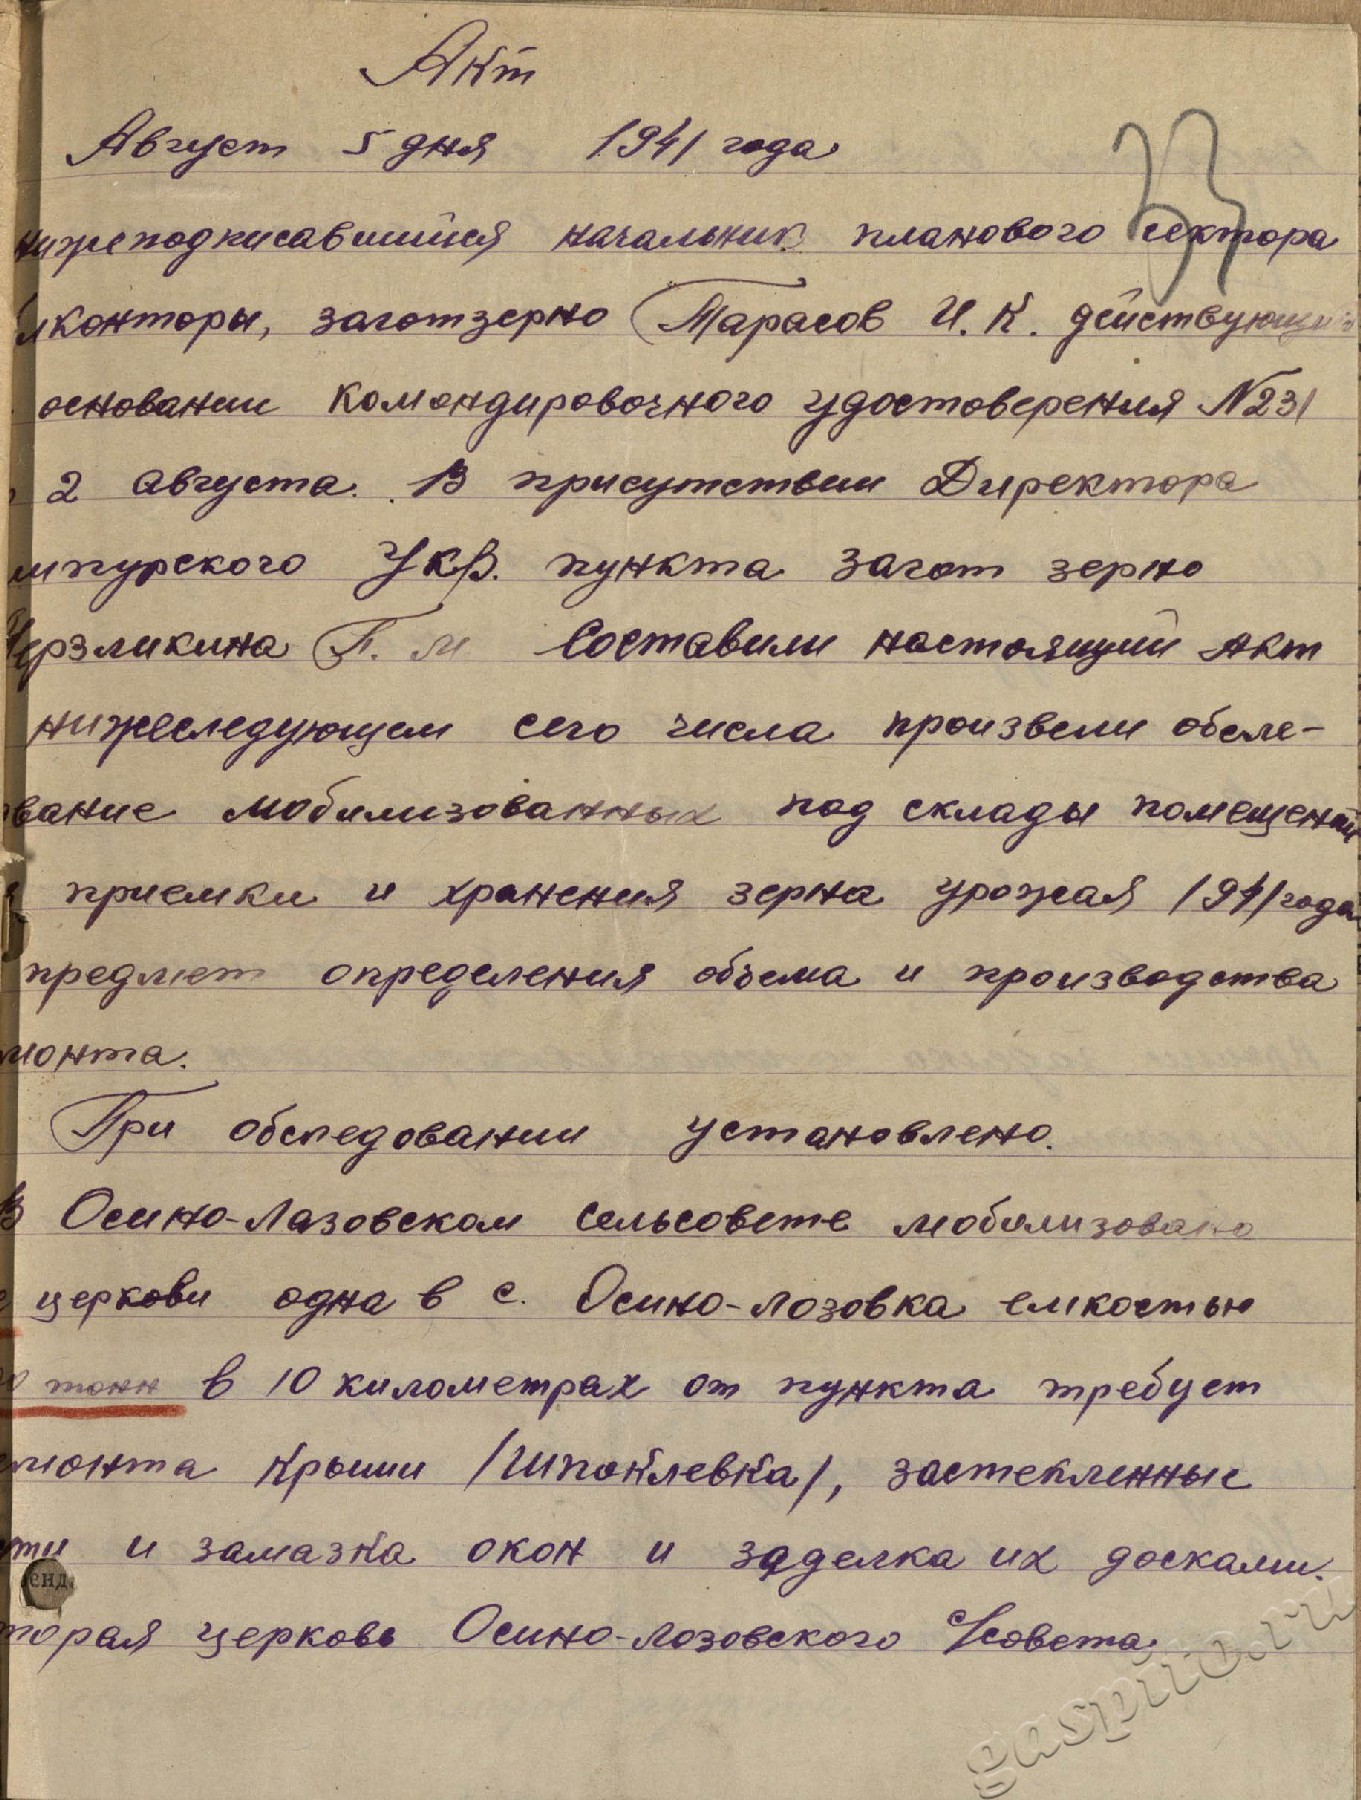 Акт
Август 5 дня 1941 года
33
нижеподписавшийся начальник планового сектора
лконторы, заготзерно Тарасов И. К. действующий
основании командировочного удостоверения №231
2 августа. В присутствии Директора
мпурского Укр. пункта загот зерно
Черзликина П. М Составили настоящий акт
нижеследующем сего числа произвели обсле-
ование мобилизованных под склады помещений
приемки и хранения зерна урожая 1941 года
предмет определения объема и производства
монта.
При обследовании установлено.
В Осино-Лазовском сельсовете мобилизовано
церкови одна в с. Осино-лозовка емкостью
0 тонн в 10 километрах от пункта требует
емонта крыши /шпаклевка/, застекленные
сти и замазка окон и заделка их досками.
енд.
торая церковь Осино-лозовского С/совета
gaspito.ru